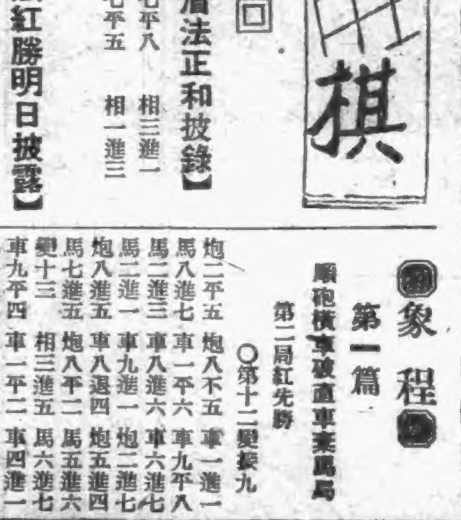 棋
法正和披錄】
平八 相三進一
平五 相一進三
紅勝明日披露】
象程
第一篇
順砲橫車破直車棄馬局
第二局紅先勝
○第十二變接九
炮二平五 炮八不五 車一進一
馬八進七 車一平六 車九平八
馬二進三 車八進六 車六進七
馬二進一 車九進一 炮二進七
炮八進五 車八退四 炮五進四
馬七進五 炮八平二 馬五進六
變十三 相三進五 馬六進七
車九平四 車一平二 車四進一